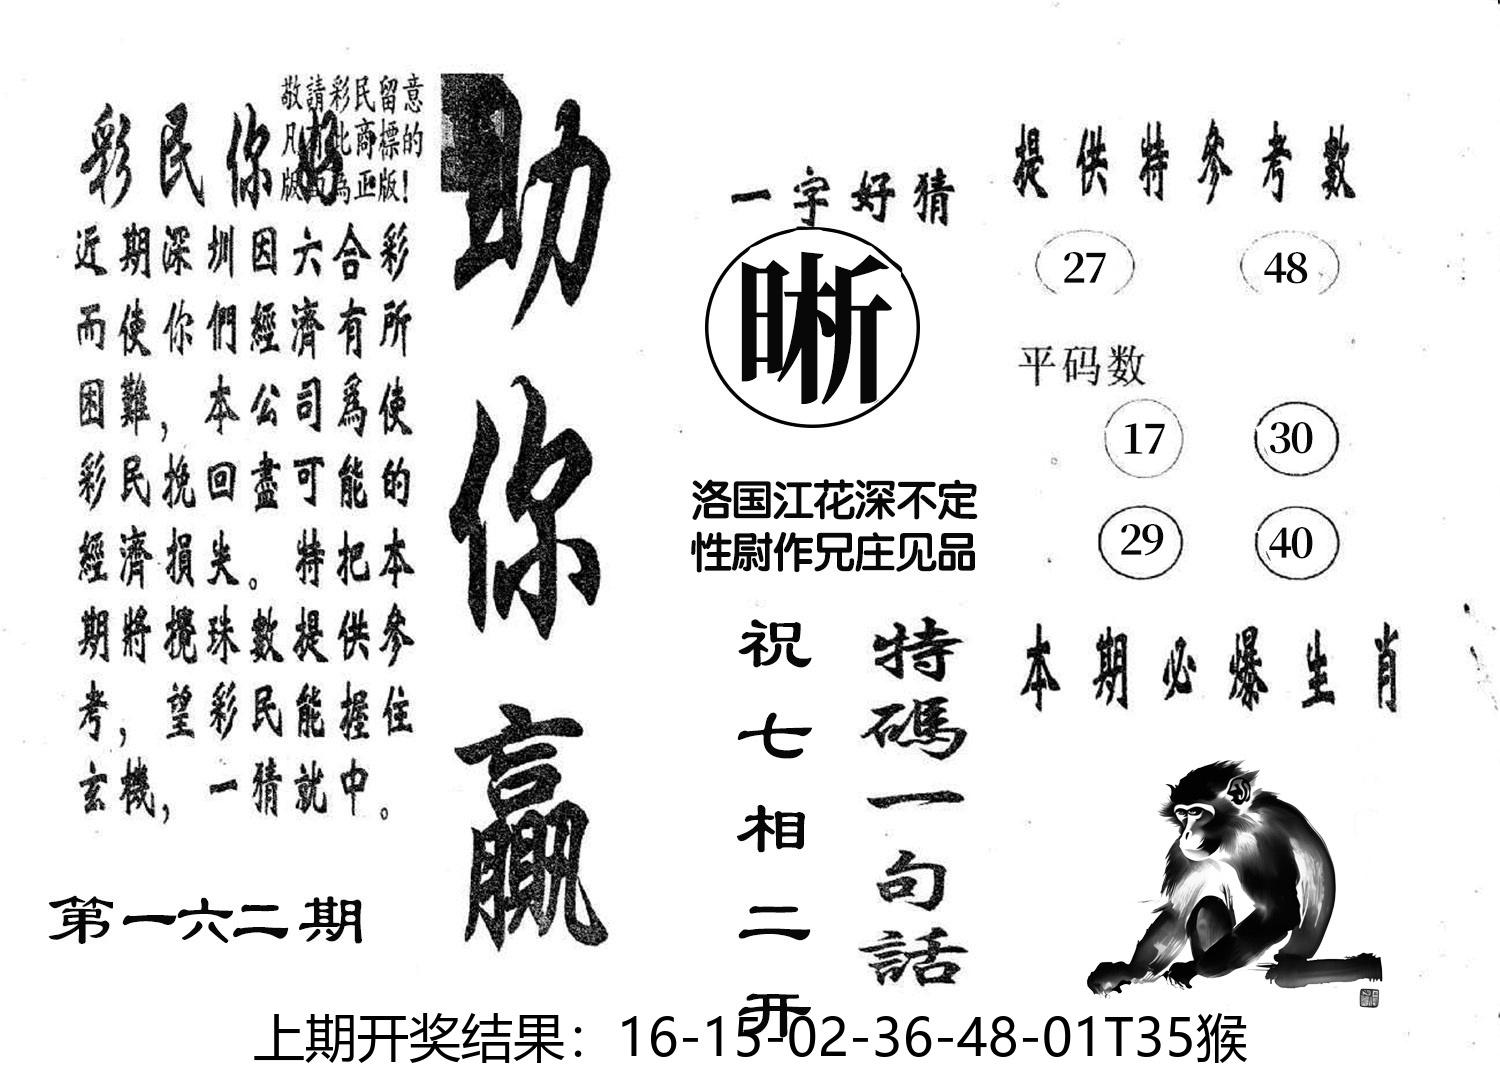 敬請彩民留意
凡有此商標的
版面為正版！
彩民你好
近期深圳因六合彩
而使你們經濟有所
困難，本公司爲使
彩民挽回盡可能的
經濟損失。特把本
期將攪珠數提供參
考，望彩民能握住
玄機，一猜就中。
第一六二期
助你贏
一字好猜
晰
洛国江花深不定
性尉作兄庄见品
特碼一句話
祝七相二开
提供特參考數
27 48
平码数
17 30
29 40
本期必爆生肖
上期开奖结果：16-15-02-36-48-01T35猴